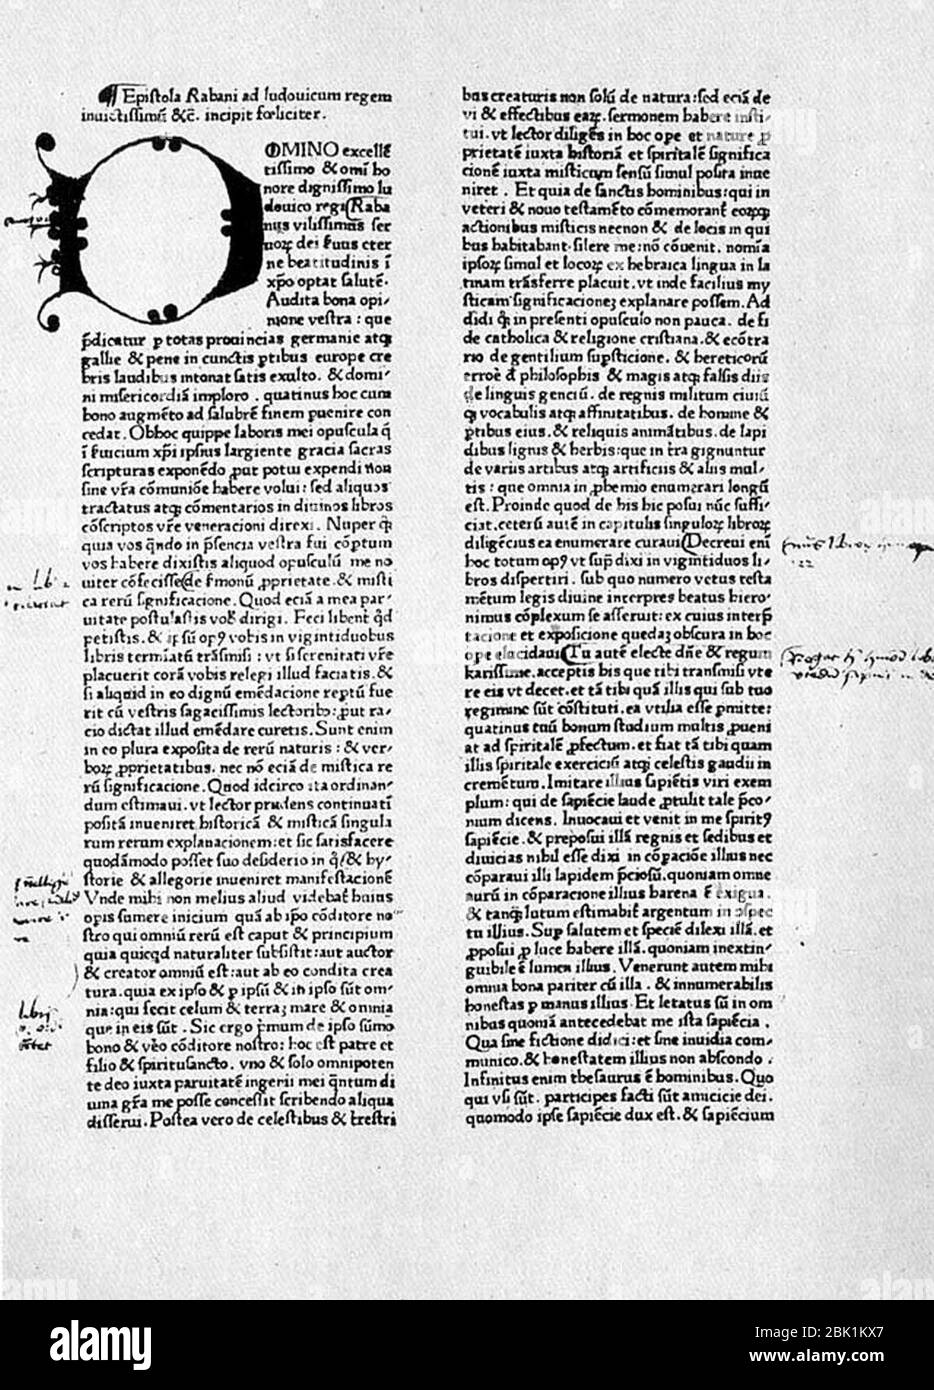 Epistola Rabani ad ludouicum regem
inuictissimū &c̄. incipit fœliciter.
DOMINO excellē
tissimo & omī ho
nore dignissimo lu
douico regi Raba
nus vilissimus ser
uoꝝ dei ẜuus eter
ne beatitudinis ī
xp̄o optat salutē.
Audita bona opi/
nione vestra : que
p̄dicatur ꝑ totas prouincias germanie atqꝫ
gallie & pene in cunctis ꝑtibus europe cre
bris laudibus intonat satis exulto. & domi/
ni misericordiā imploro . quatinus hoc cum
bono augmēto ad salubrē finem ꝑuenire con
cedat. Obhoc quippe laboris mei opuscula q̄
ī ẜuicium xp̄i ipsius largiente gracia sacras
scripturas exponēdo ꝓut potui expendi non
sine vr̄a cōmuniōe habere volui: sed aliquos
tractatus atqꝫ cōmentarios in diuinos libros
cōscriptos vr̄e veneracioni direxi. Nuper qꝫ
quia vos qn̄do in p̄sencia vestra fui cōptum
vos habere dixistis aliquod opusculū me no
uiter cōfecisse de ẜmonū ꝓprietate. & misti
ca rerū significacione. Quod eciā a mea par/
uitate postulastis vob̄ dirigi. Feci libent̄ qd̄
petistis. & ip̄sū opꝰ vobis in vigintiduobus
libris terminatū trāsmisi : vt si serenitati vr̄e
placuerit corā vobis relegi illud faciatis. &
si aliquid in eo dignū emēdacione reptū fue
rit cū vestris sagacissimis lectorib; ꝓut ra/
cio dictat illud emēdare curetis. Sunt enim
in eo plura exposita de rerū naturis : & ver/
boꝝ ꝓprietatibus. nec nō eciā de mistica re
rū significacione. Quod idcirco ita ordinan/
dum estimaui. vt lector prudens continuatī
positā inueniret historicā & misticā singula
rum rerum explanacionem: et sic satisfacere
quodāmodo posset suo desiderio in qꝫ & hy/
storie & allegorie inueniret manifestacionē
Vnde mihi non melius aliud videbat̄ huius
opis sumere inicium quā ab ip̄o cōditore no/
stro qui omniū rerū est caput & principium
quia quicqd naturaliter subsistit: aut auctor
& creator omniū est: aut ab eo condita crea
tura. quia ex ipso & ꝑ ipsū & in ipso sūt om/
nia: qui fecit celum & terrā; mare & omnia
que in eis sūt . Sic ergo p̄mum de ipso sūmo
bono & vēo cōditore nostro: hoc est patre et
filio & spiritusancto. vno & solo omnipoten
te deo iuxta paruitatē ingenii mei qn̄tum di
uina gr̄a me posse concessit scribendo aliqua
disserui. Postea vero de celestibus & trestri
bus creaturis non solū de natura: sed eciā de
vi & effectibus eaꝝ. sermonem habere insti/
tui. vt lector diligēs in hoc ope et nature ꝓ
prietatē iuxta historiā et spiritalē significa
cionē iuxta misticum sensū simul posita inue
niret . Et quia de sanctis hominibus: qui in
veteri & nouo testamēto cōmemorant̄ eoꝝqꝫ
actionibus misticis necnon & de locis in qui
bus habitabant silere me: nō cōuenit. nomīa
ipsoꝝ simul et locoꝝ ex hebraica lingua in la
tinam trāsferre placuit. vt inde facilius my
sticam significacionem explanare possem. Ad
didi qꝫ in presenti opusculo non pauca. de fi
de catholica & religione cristiana. & ecōtra
rio de gentilium supsticione. & hereticorū
errore & philosophis & magis atqꝫ falsis diis
de linguis genciū. de regnis militum ciuiū
qꝫ vocabulis atqꝫ affinitatibus. de homine &
ꝑtibus eius. & reliquis animātibus. de lapi
dibus lignis & herbis: que in tr̄a gignuntur
de variis artibus atqꝫ artificiis & aliis mul/
tis : que omnia in ꝓhemio enumerari longū
est. Proinde quod de his hic posui nūc suffi/
ciat. ceterū autē in capitulis singuloꝝ libroꝝ
diligēcius ea enumerare curaui Decreui enī
hoc totum opꝰ vt sup̄ dixi in vigintiduos li/
bros dispertiri. sub quo numero vetus testa
mētum legis diuine interpres beatus hiero/
nimus cōplexum se asseruit: ex cuius interp̄
tacione et exposicione quedaꝫ obscura in hoc
ope elucidaui Tu autē electe dn̄e & regum
karissime. acceptis his que tibi transmisi vte
re eis vt decet. et tā tibi quā illis qui sub tuo
regimine sūt cōstituti. ea vtilia esse ꝑmitte:
quatinus tuū bonum studium multis ꝓueni
at ad spiritalē ꝓfectum. et fiat tā tibi quam
illis spiritale exerciciū atqꝫ celestis gaudii in
cremētum. Imitare illius sapiētis viri exem
plum: qui de sapiēcie laude ꝓtulit tale p̄co/
nium dicens. Inuocaui et venit in me spiritꝰ
sapiēcie. & preposui illā regnis et sedibus et
diuicias nihil esse dixi in cōpaciōe illius nec
cōparaui illi lapidem p̄ciosū. quoniam omne
aurū in cōparacione illius harena ē exigua.
& tanqꝫ lutum estimabit̄ argentum in cōspec
tu illius. Sup salutem et speciē dilexi illā. et
ꝓposui ꝓ luce habere illā. quoniam inextin/
guibile ē lumen illius. Venerunt autem mihi
omnia bona pariter cū illa . & innumerabilis
honestas ꝑ manus illius. Et letatus sū in om
nibus quoniā antecedebat me ista sapiēcia .
Qua sine fictione didici: et sine inuidia com/
munico. & honestatem illius non abscondo .
Infinitus enim thesaurus ē hominibus. Quo
qui vsi sūt. participes facti sūt amicicie dei.
quomodo ipse sapiēcie dux est. & sapiēcium
alamy
Image ID: 2BK1KX7
www.alamy.com